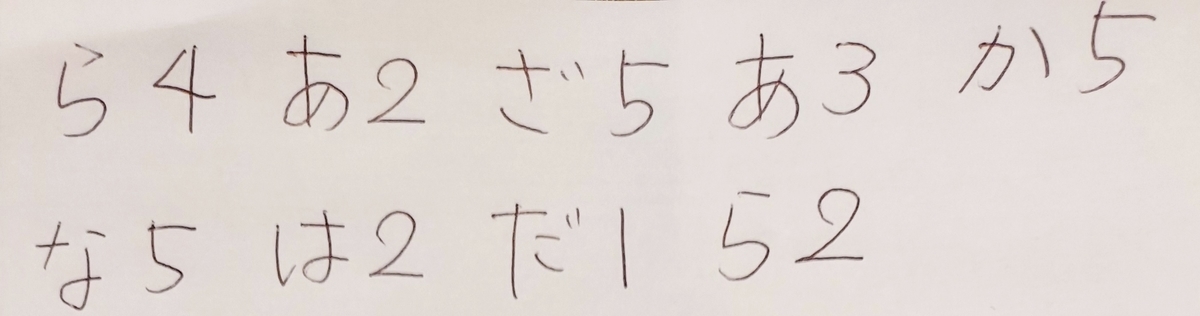 ら4 あ2 ざ5 あ3 か5
な5 は2 だ1 ら2